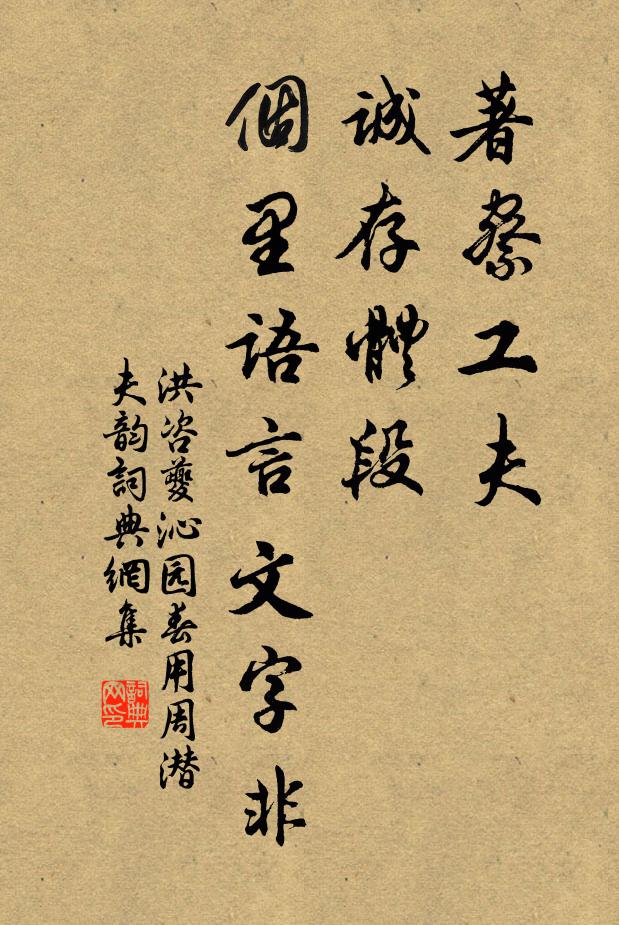 著察工夫
誠存體段
個里語言文字非
洪咨夔沁园春用周潜
夫韵詞典網集
詞典网印